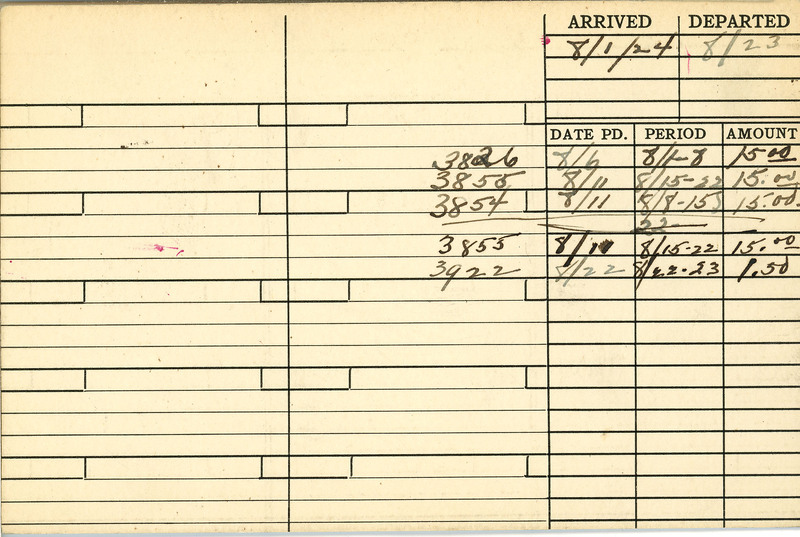 ARRIVED DEPARTED
8/1/24 8/23
DATE PD. PERIOD AMOUNT
3826 8/6 8/1-8 15.00
3855 8/11 8/15-22 15.00
3854 8/11 8/8-15 15.00
22
3855 8/11 8/15-22 15.00
3922 8/22 8/22-23 1.50